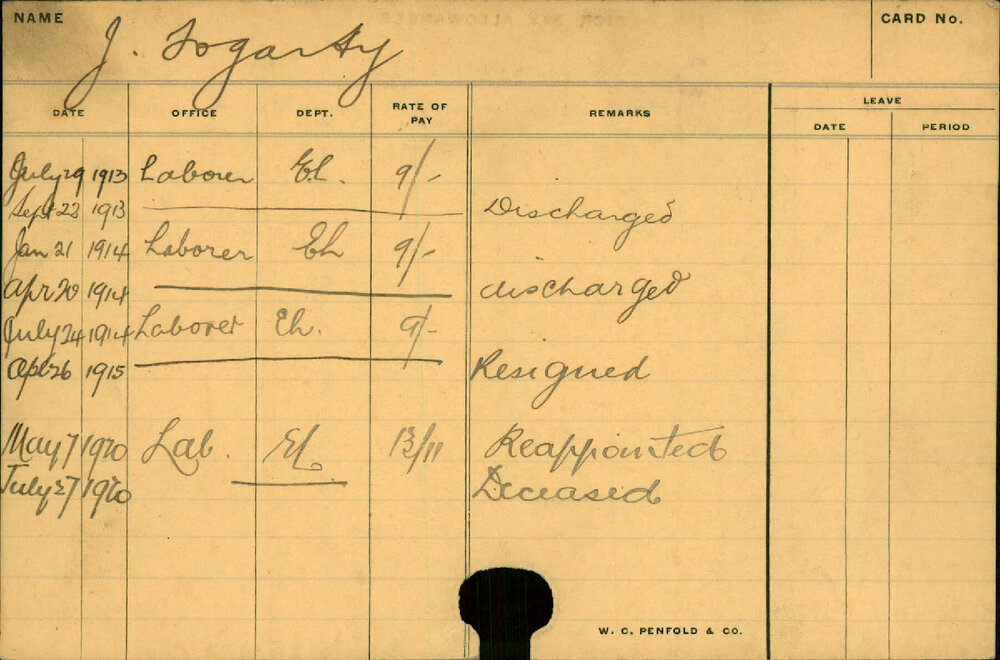 NAME J. Fogarty CARD No.
LEAVE
DATE OFFICE DEPT. RATE OF PAY REMARKS DATE PERIOD
July 29 1913 Laborer EL. 9/-
Sept 22 1913 Discharged
Jan 21 1914 Laborer EL 9/-
Apr 20 1914 discharged
July 24 1914 Laborer EL. 9/-
Apl 26 1915 Resigned
May 7 1920 Lab. EL 13/11 Reappointed
July 27 1920 Deceased
W. C. PENFOLD & CO.